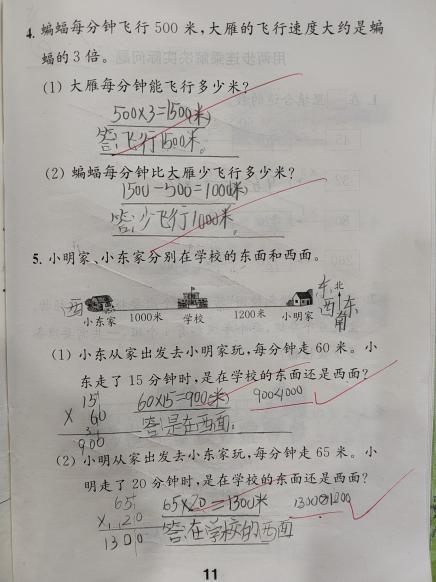 4. 蝙蝠每分钟飞行 500 米,大雁的飞行速度大约是蝙
蝠的 3 倍。
(1) 大雁每分钟能飞行多少米?
500×3=1500(米)
答:飞行1500米。
(2) 蝙蝠每分钟比大雁少飞行多少米?
1500-500=1000(米)
答:少飞行1000米。
5. 小明家、小东家分别在学校的东面和西面。
西 东 北
西 东
小东家 1000米 学校 1200米 小明家 南
(1) 小东从家出发去小明家玩,每分钟走 60 米。小
东走了 15 分钟时,是在学校的东面还是西面?
15 60×15=900(米) 900<1000
× 60 答:是在西面。
900
(2) 小明从家出发去小东家玩,每分钟走 65 米。小
明走了 20 分钟时,是在学校的东面还是西面?
65 65×20=1300米 1300>1200
× 20 答:在学校的西面
1300
11